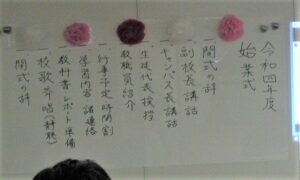 令和四年度
始業式
開式の辞
副校長講話
キャンパス長講話
生徒代表挨拶
教職員紹介
行事予定 時間割
学習内容 諸連絡
教科書・レポート準備
校歌斉唱(静聴)
閉式の辞